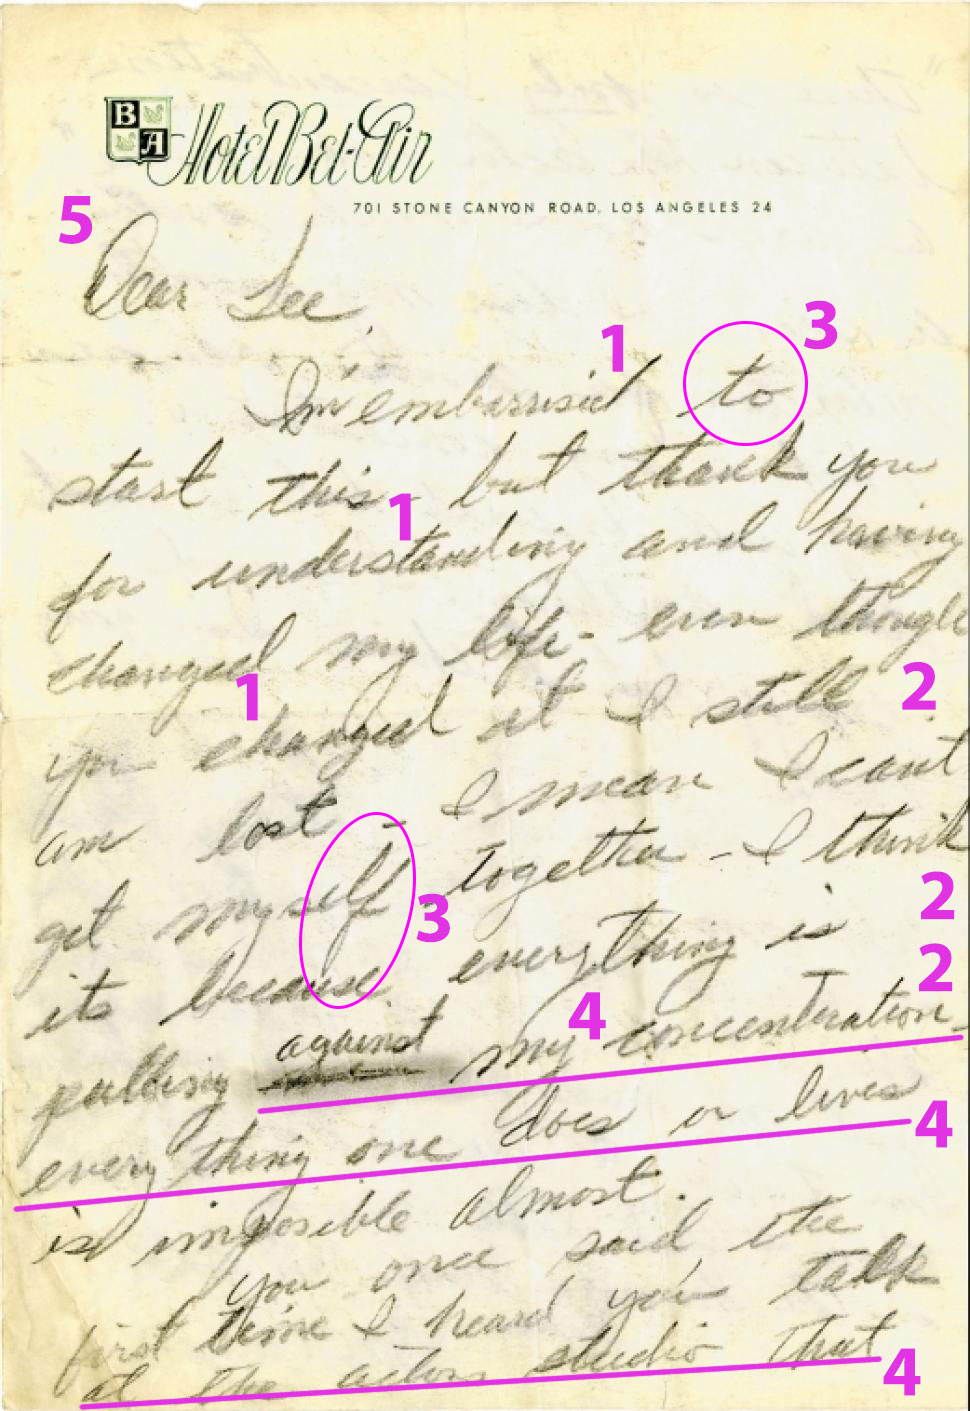 B A Hotel Bel-Air
701 STONE CANYON ROAD, LOS ANGELES 24
5
Dear Lee,
1 3
I'm embarrised to
start this but thank you
1
for understanding and having
changed my life - even though
1 2
you changed it I still
am lost - I mean I cant
get myself together - I think
3 2
its because everything is
2
4
pulling against my concentration -
everything one does or lives
4
is imposible almost.
you once said, the
first time I heard you talk
at the actors studio that
4